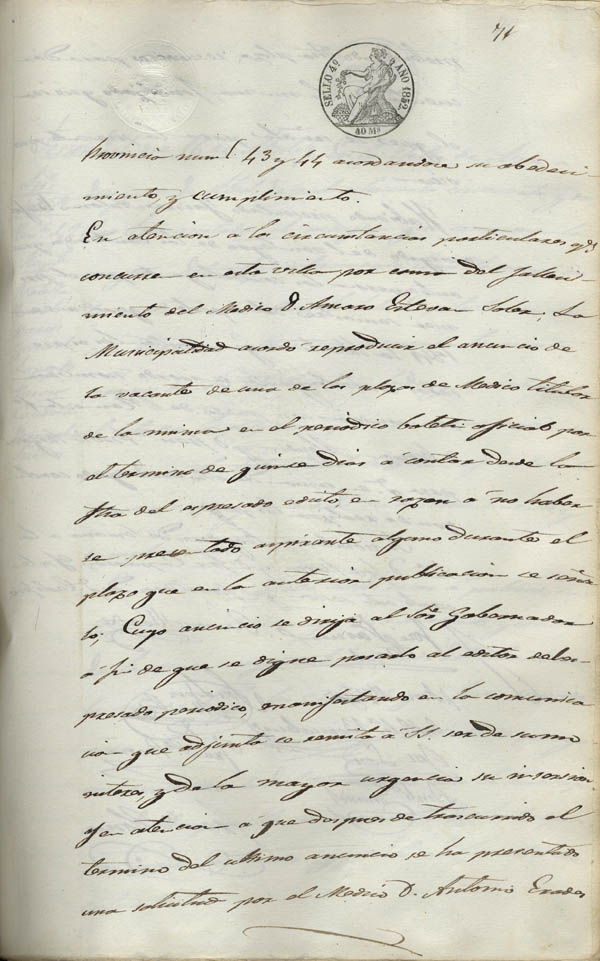 71
SELLO 4º AÑO 1852.
40 Ms
Provincia num 43 y 44 acordandose su obedeci-
miento y cumplimiento.
En atencion a las circunstancias particulares qe
concurre en esta villa por causa del falleci-
miento del Medico D. Amaro Esteban Soler, La
Municipalidad acordó reproducir el anuncio de
la vacante de una de las plazas de Medico titular
de la misma en el periodico boletin official por
el termino de quince dias á contar desde la
fha del espresado edicto, en razon á no haber
se presentado aspirante alguno durante el
plazo que en la anterior publicacion se señá
ló; Cuyo anuncio se dirija al Sor. Gobernador
á fin de que se digne pasarlo al editor del es-
presado periodico, manifestando en la comunica
cion que adjunta se remita á SS. ser de sumo
interes, y de la mayor urgencia su insersion
Y en atencion á que despues de trascurrido el
termino del ultimo anuncio se ha presentado
una solicitud por el Medico D. Antonio Erades